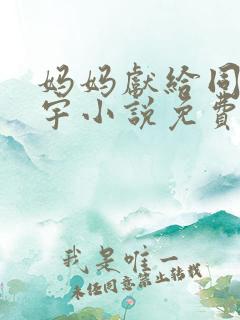 妈妈獻給同
宇小說免費
我是唯一
未任同意禁止转载